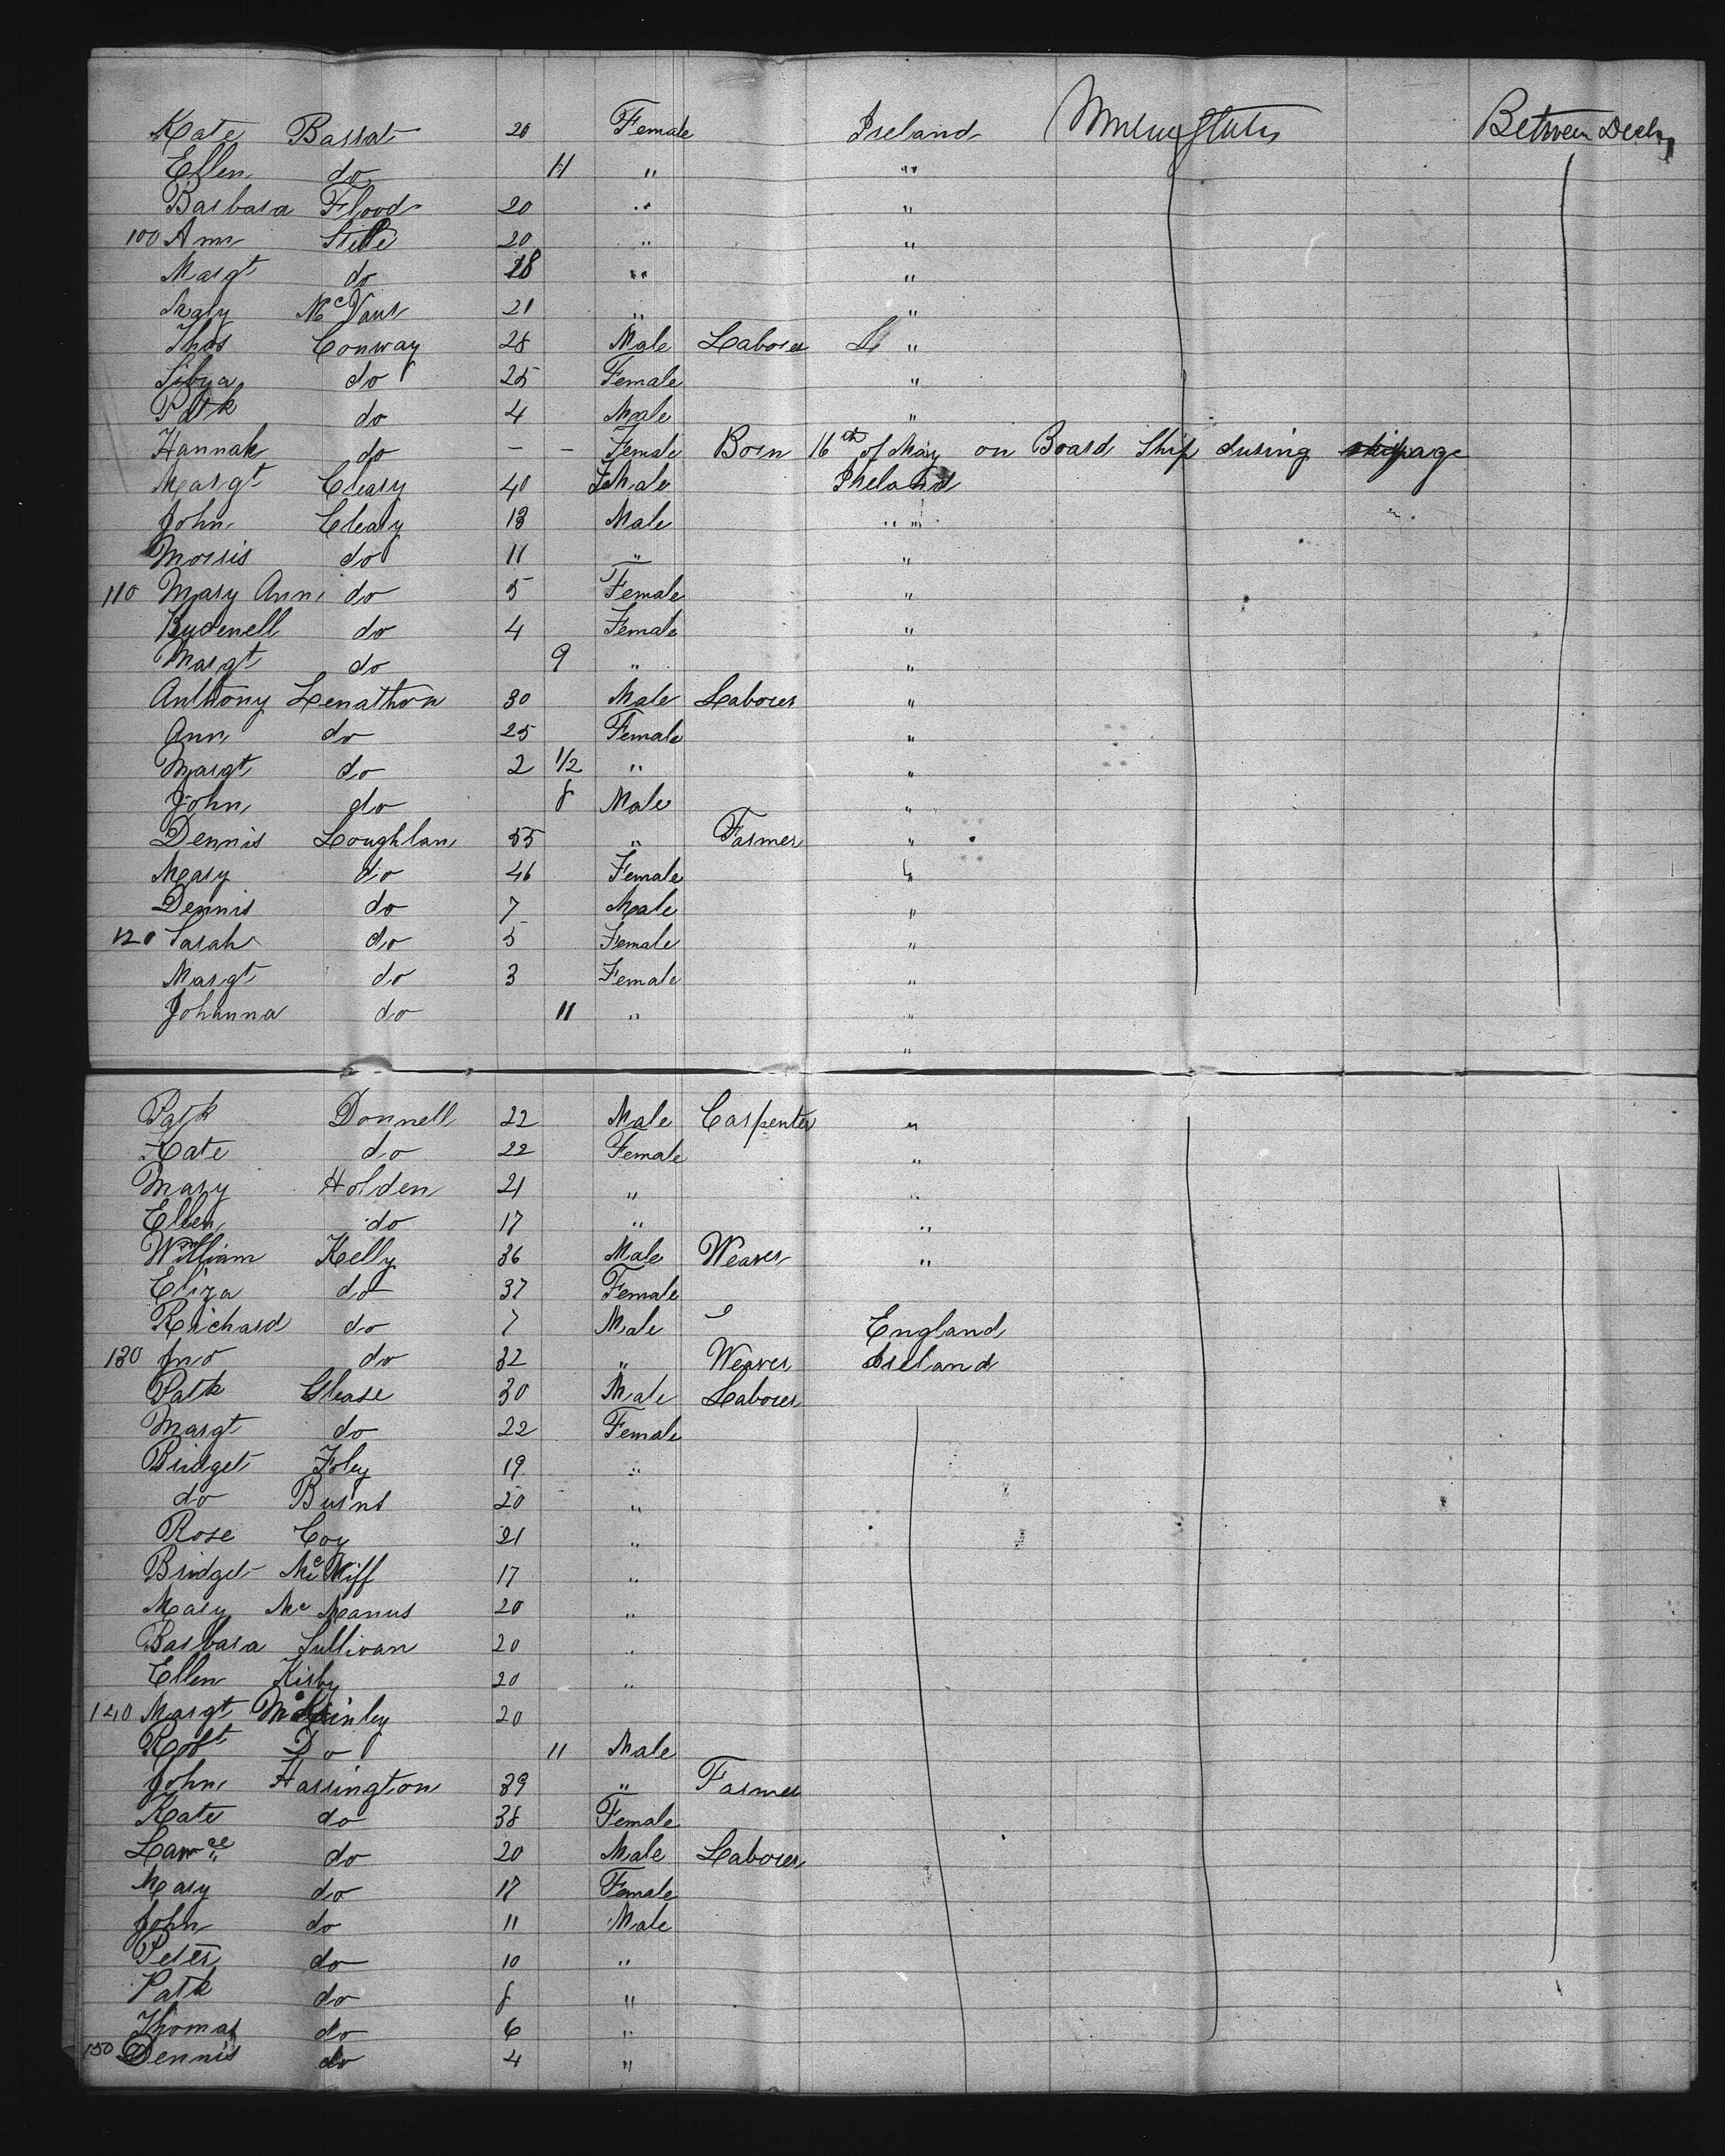 Kate Barrat 20 Female Ireland United States Between Decks
Ellen do 11 " "
Barbara Flood 20 " "
100 Ann 20 " "
Margt do 18 " "
Mary 21 " "
Thos Conway 28 Male Laborer "
do 25 Female "
Patk do 4 Male "
Hannah do - - Female Born 16th of May on Board Ship during
Margt Cleary 40 FeMale Ireland
John Cleary 13 Male " "
Morris do 11 " "
110 Mary Ann do 5 Female "
do 4 Female "
Margt do 9 " "
Anthony Lenathon 30 Male Laborer "
Ann do 25 Female "
Margt do 2 1/2 " "
John do 8 Male "
Dennis Loughlan 55 " Farmer "
Mary do 46 Female "
Dennis do 7 Male "
120 Sarah do 5 Female "
Margt do 3 Female "
Johanna do 11 " "
"
Patk Donnell 22 Male Carpenter "
Kate do 22 Female "
Mary Holden 21 " "
Ellen do 17 " "
William Kelly 36 Male Weaver "
Eliza do 37 Female
Richard do 7 Male England
130 Jno do 32 " Weaver Ireland
Patk Glease 30 Male Laborer
Margt do 22 Female
Bridget Foley 19 "
do Burns 20 "
Rose Coy 21 "
Bridget 17 "
Mary Mc Manus 20 "
Barbara Sullivan 20 "
Ellen Kirby 20 "
140 Margt McKinley 20
Robt Do 11 Male
John Harrington 39 " Farmer
Kate do 38 Female
Lawce do 20 Male Laborer
Mary do 17 Female
John do 11 Male
Peter do 10 "
Patk do 8 "
Thomas do 6 "
150 Dennis do 4 "